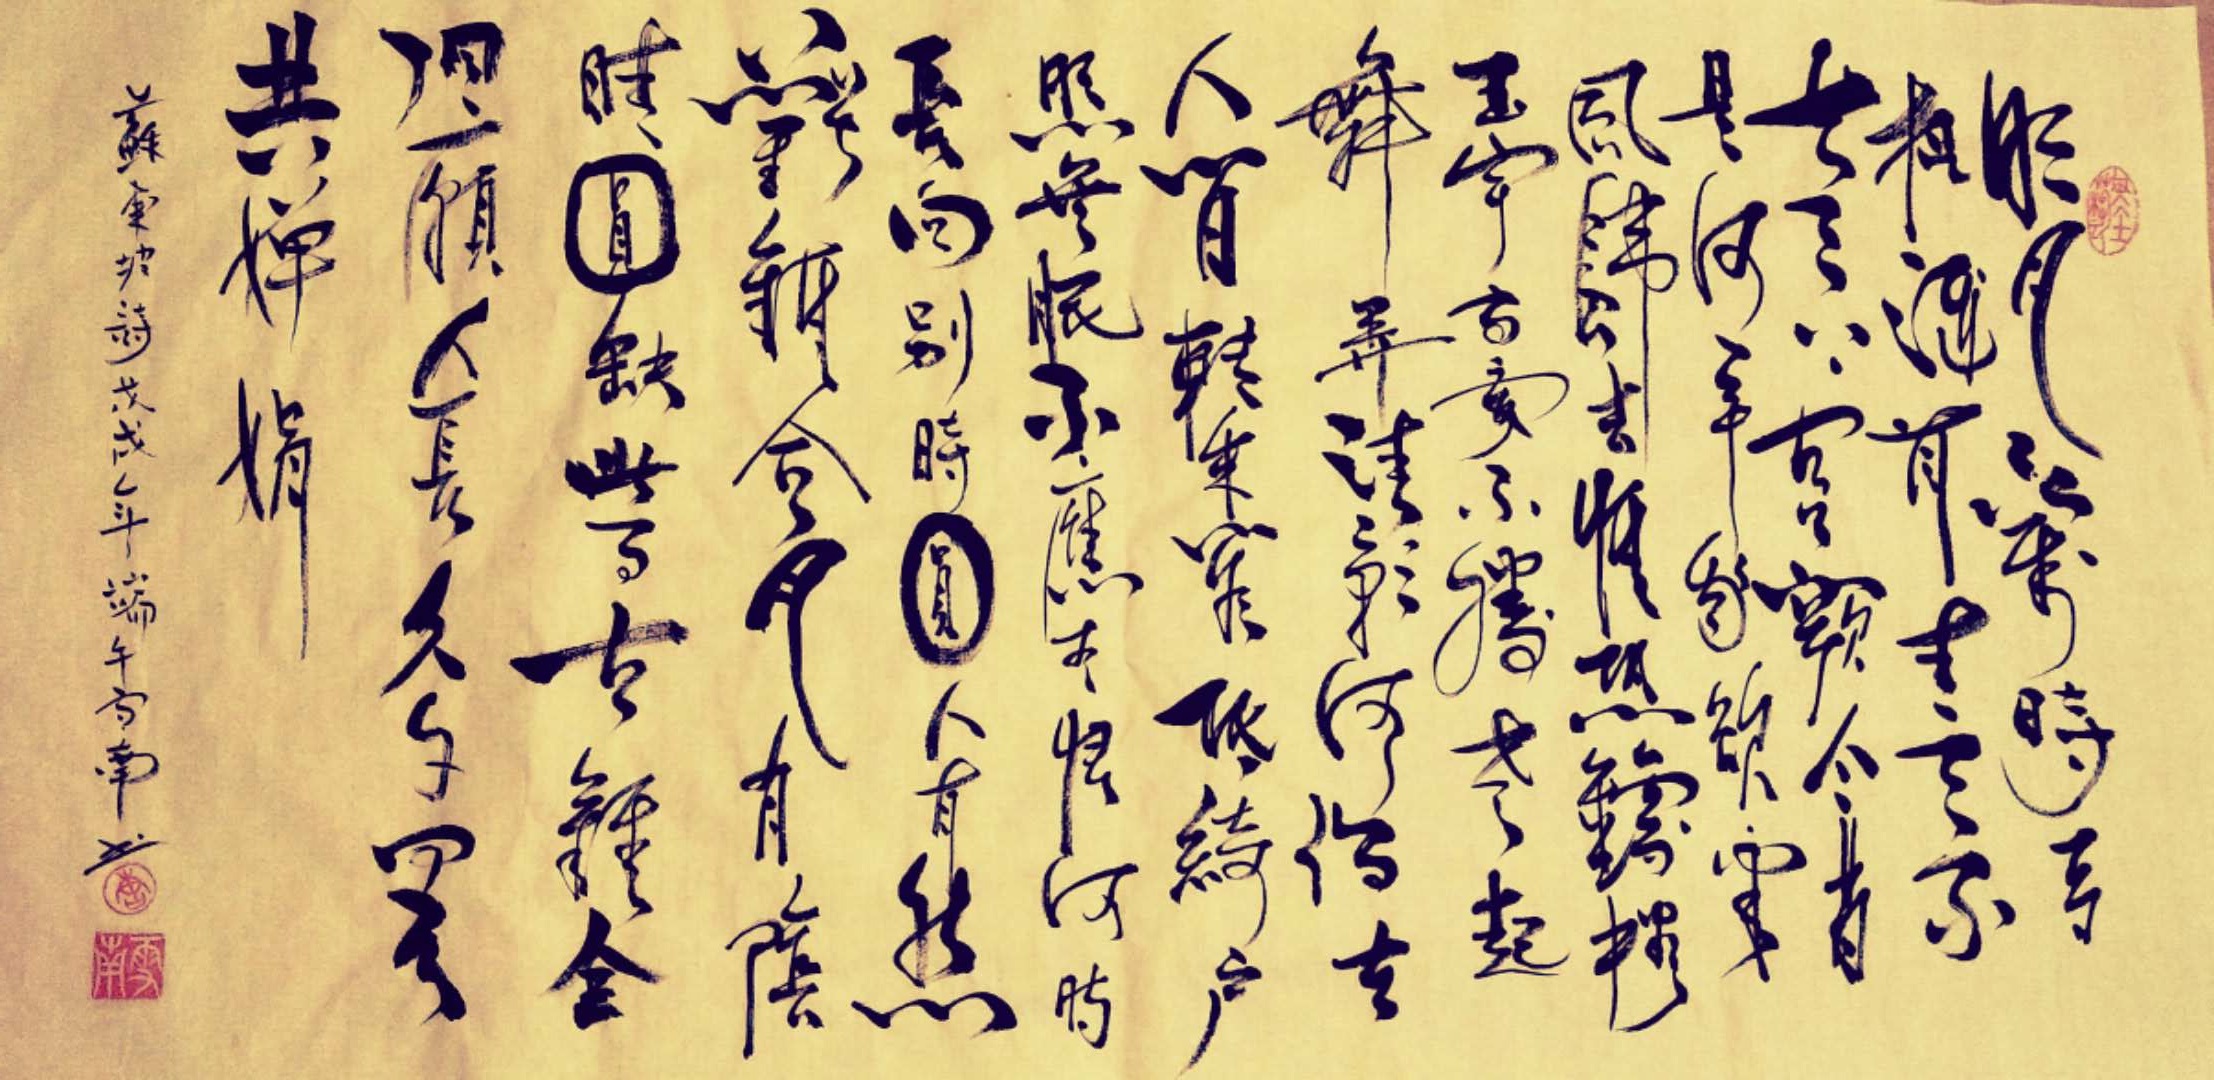 明月幾時有
把酒問青天不
知天上宮闕今宵
是何年我欲乘
風歸去惟恐瓊樓
玉宇高處不勝寒起
舞弄清影何似在
人間轉朱閣低綺戶
照無眠不應有恨何時
長向別時圓人有悲
歡離合月有陰
晴圓缺此事古難全
但願人長久千里
共嬋娟
蘇東坡詩戊戌年端午雪南書
雪南